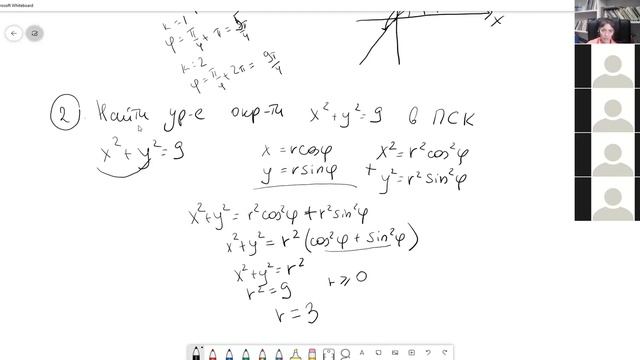 Microsoft Whiteboard
k=1
φ=π/4+π=5π/4
k=2
φ=π/4+2π=9π/4
x
② Найти ур-е окр-ти x²+y²=9 в ПСК
x²+y²=9
x=rcosφ
y=rsinφ
x²=r²cos²φ
+ y²=r²sin²φ
x²+y²=r²cos²φ+r²sin²φ
x²+y²=r²(cos²φ+sin²φ)
x²+y²=r²
r²=9 r≥0
r=3